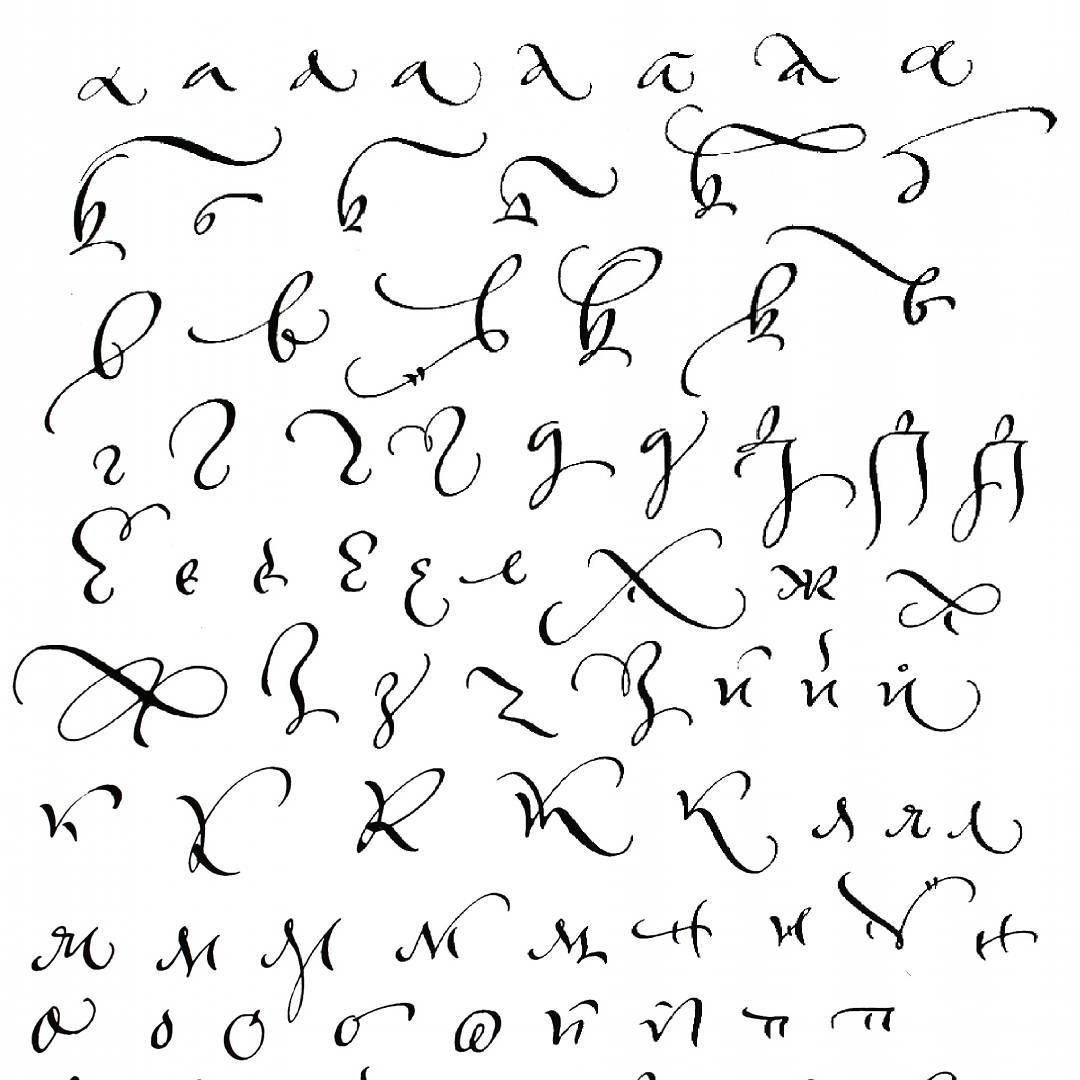 а а а а а а а а
б б б б б б
в в в в в в
г г г г д д д д д
е е е е е е ж ж ж
ж з з з з и и и
к к к к к л л л
м м м м м н н н н
о о о о о п п п п